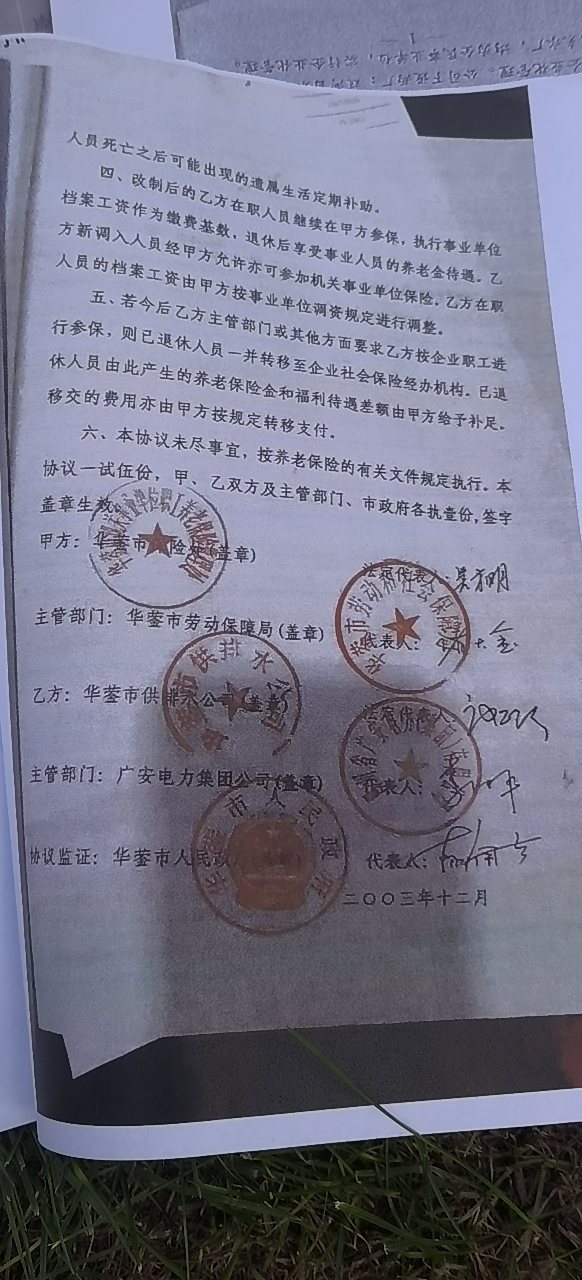 人员死亡之后可能出现的遗属生活定期补助。
四、改制后的乙方在职人员继续在甲方参保，执行事业单位
档案工资作为缴费基数，退休后享受事业人员的养老金待遇。乙
方新调入人员经甲方允许亦可参加机关事业单位保险。乙方在职
人员的档案工资由甲方按事业单位调资规定进行调整。
五、若今后乙方主管部门或其他方面要求乙方按企业职工进
行参保，则已退休人员一并转移至企业社会保险经办机构。已退
休人员由此产生的养老保险金和福利待遇差额由甲方给予补足。
移交的费用亦由甲方按规定转移支付。
六、本协议未尽事宜，按养老保险的有关文件规定执行。本
协议一试伍份，甲、乙双方及主管部门、市政府各执壹份，签字
盖章生效。
甲方：华蓥市 险 (盖章)
代表人：
主管部门：华蓥市劳动保障局(盖章) 代表人：
乙方：华蓥市供排水公司(盖章) 代表人：
主管部门：广安电力集团公司(盖章) 代表人：
协议监证：华蓥市人民政 代表人：
二〇〇三年十二月